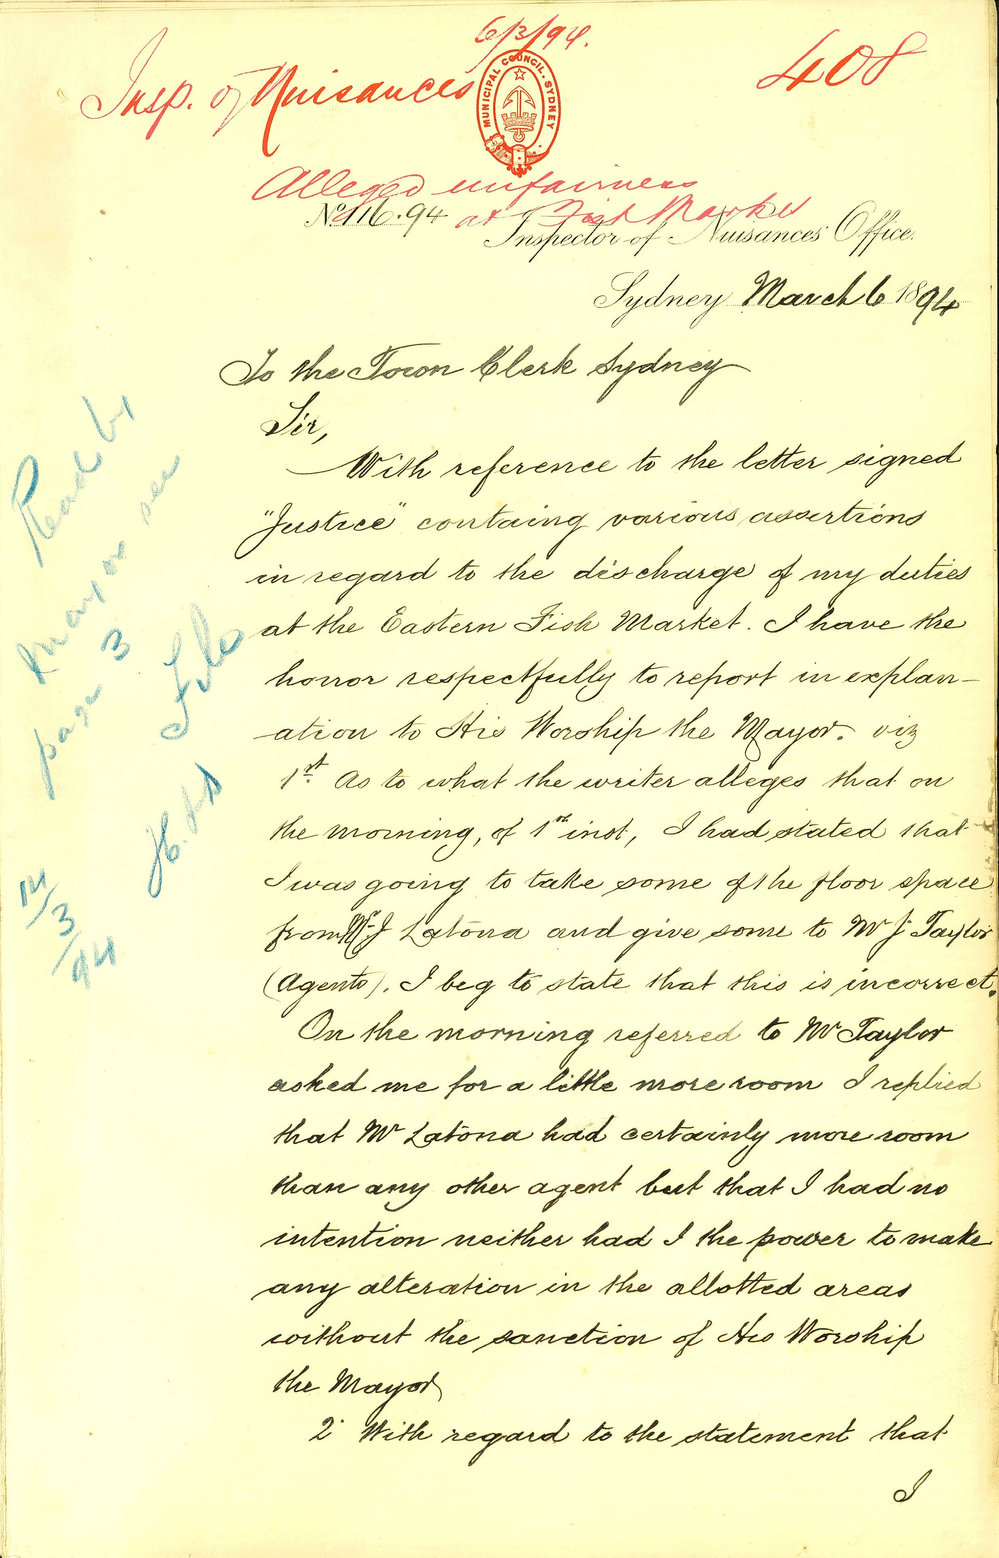 6/3/94.
408
Insp. of Nuisances
MUNICIPAL COUNCIL. SYDNEY
Alleged unfairness
at Fish Market
No. 116.94
Inspector of Nuisances Office.
Sydney March 6 1894
To the Town Clerk Sydney
Sir,
With reference to the letter signed
"Justice" containg various assertions
in regard to the discharge of my duties
at the Eastern Fish Market. I have the
honor respectfully to report in explan-
ation to His Worship the Mayor. viz
1st As to what the writer alleges that on
the morning, of 1st inst, I had stated that
I was going to take some of the floor space
from Mr J Latona and give some to Mr J Taylor
(Agents). I beg to state that this is incorrect.
On the morning referred to Mr Taylor
asked me for a little more room I replied
that Mr Latona had certainly more room
than any other agent but that I had no
intention neither had I the power to make
any alteration in the allotted areas
without the sanction of His Worship
the Mayor
2 With regard to the statement that
I
Read by
Mayor see
page 3
File
14/3/94